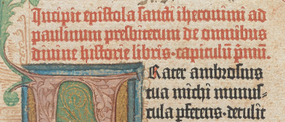 Incipit epistola sancti iheronimi ad
paulinum presbiterum de omnibus
divine historie libris. capitulũ p̃mũ.
Frater ambrosius
tua michi munus-
cula pferens. detulit